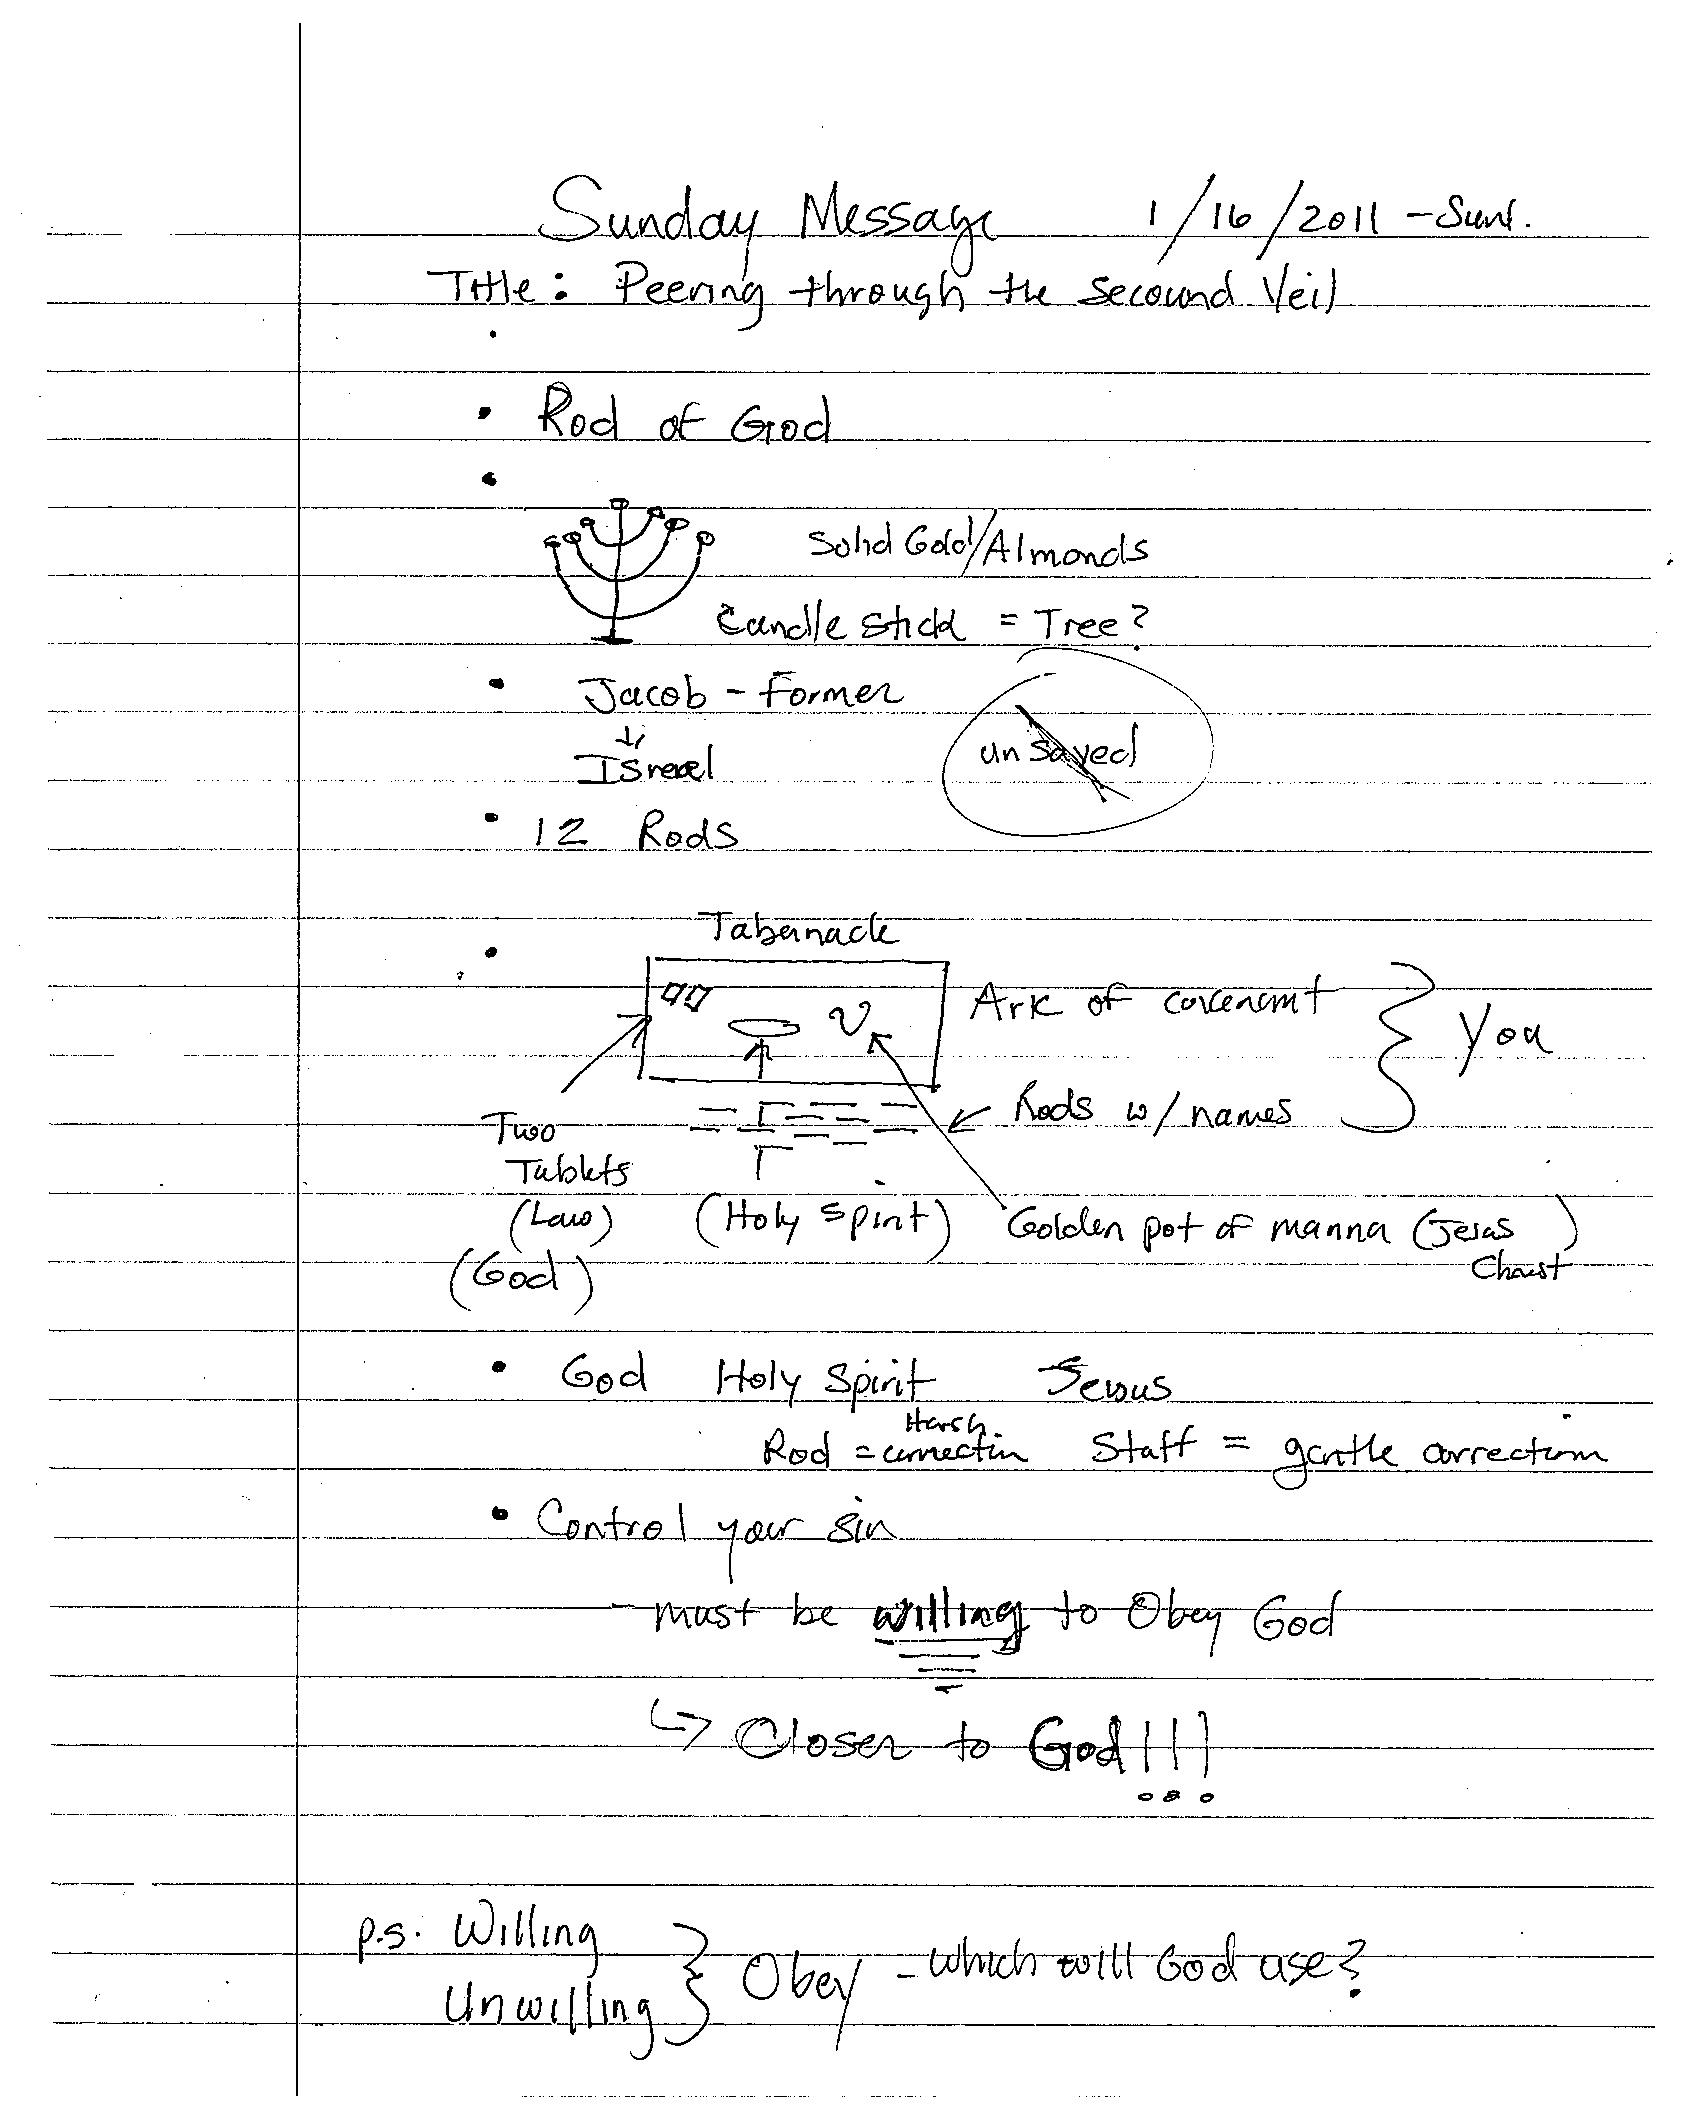 Sunday Message 1/16/2011 - Sun.
Title: Peering through the Secound Veil
• Rod of God
Solid Gold/Almonds
Candle stick = Tree?
• Jacob - Former
↓
Israel
unsaved
• 12 Rods
Tabernacle
Ark of covenant } You
Rods w/ names
Two
Tablets
(Law) (Holy Spirit) Golden pot of manna (Jesus
(God) Christ)
• God Holy Spirit Jesus
Harsh
Rod = correction Staff = gentle correction
• Control your sin
- must be willing to Obey God
↳ Closer to God!!!
p.s. Willing
Unwilling } Obey - which will God use?